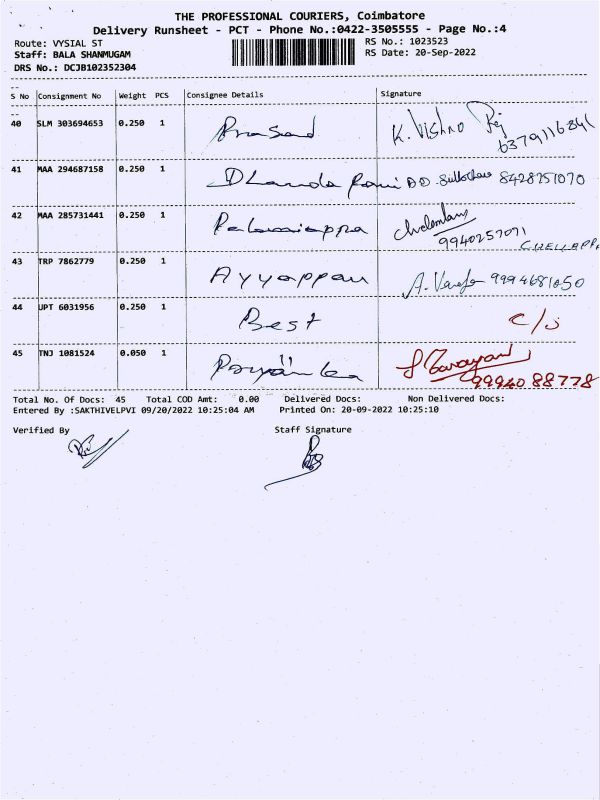 THE PROFESSIONAL COURIERS, Coimbatore
Delivery Runsheet - PCT - Phone No.:0422-3505555 - Page No.:4
Route: VYSIAL ST
RS No.: 1023523
Staff: BALA SHANMUGAM
RS Date: 20-Sep-2022
DRS No.: DCJB102352304
S No Consignment No Weight PCS Consignee Details Signature
40 SLM 303694653 0.250 1 Prasad K. Vishno
6379116841
41 MAA 294687158 0.250 1 Dhanda Pani 8428251070
42 MAA 285731441 0.250 1 Palaniappa
9940257071
CHELLAPPA
43 TRP 7862779 0.250 1 Ayyappan A. 9994681050
44 UPT 6031956 0.250 1 Best c/s
45 TNJ 1081524 0.050 1 Priyanka
9994088778
Total No. Of Docs: 45 Total COD Amt: 0.00 Delivered Docs: Non Delivered Docs:
Entered By :SAKTHIVELPVI 09/20/2022 10:25:04 AM Printed On: 20-09-2022 10:25:10
Verified By Staff Signature